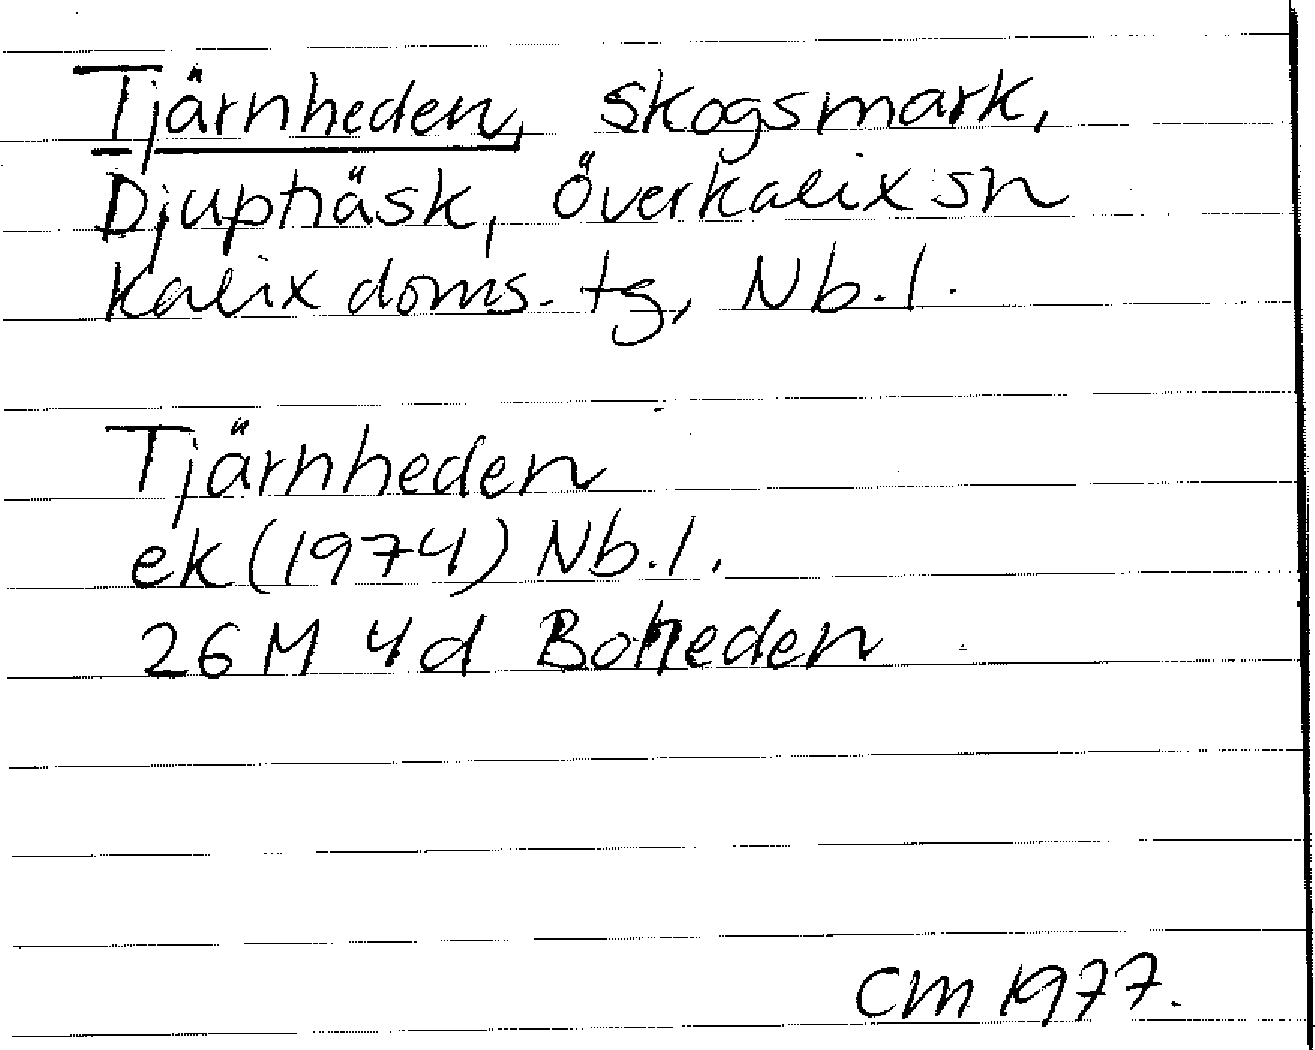 Tjärnheden, skogsmark,
Djupträsk, Överkalix sn
Kalix doms. tg, Nb. l.
Tjärnheden
ek (1974) Nb. l.
26 M 4 d Boheden
CM 1977.